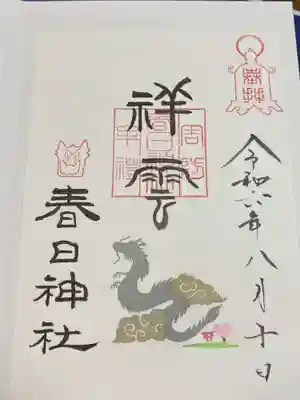 奉拝
令和六年八月十日
祥雲
春日神社